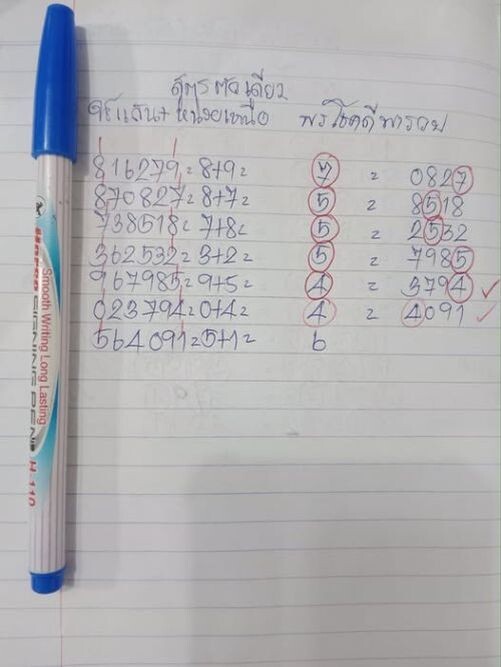 สูตรตัวเดียว
ใช้แสน+หน่วยเหนือ พรโชคดีพารวย
816279=8+9= 7 = 0827
870827=8+7= 5 = 8518
738518=7+8= 5 = 2532
362532=3+2= 5 = 7985
967985=9+5= 4 = 3794
023794=0+4= 4 = 4091
564091=5+1= 6
Smooth Writing Long Lasting
PEN H-110